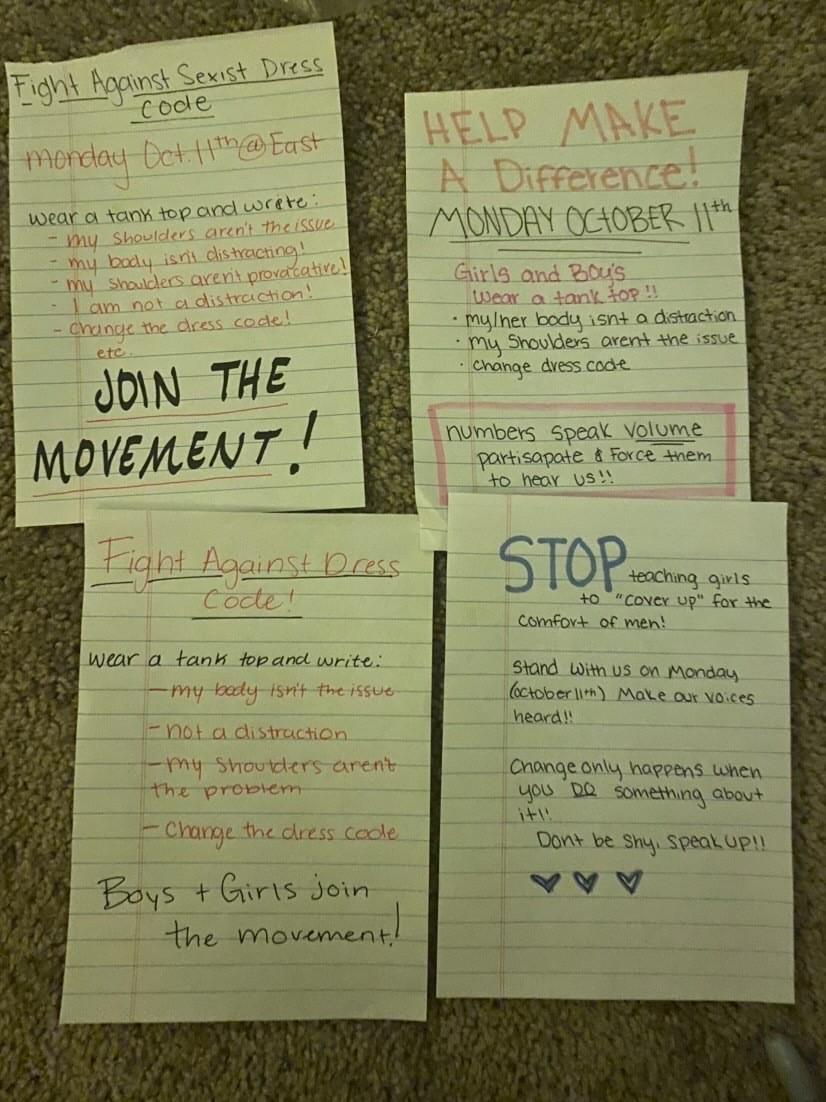 Fight Against Sexist Dress
Code
Monday Oct. 11th @ East
wear a tank top and write:
- my shoulders aren't the issue
- my body isn't distracting!
- my shoulders aren't provacative!
- I am not a distraction!
- change the dress code!
etc.
JOIN THE
MOVEMENT!
HELP MAKE
A Difference!
MONDAY OCTOBER 11th
Girls and Boy's
wear a tank top!!
• my/her body isnt a distraction
• my shoulders arent the issue
• change dress code
numbers speak volume
partisapate & Force them
to hear us!!
Fight Against Dress
Code!
wear a tank top and write:
- my body isn't the issue
- not a distraction
- my shoulders aren't
the problem
- Change the dress code
Boys + Girls join
the movement!
STOP teaching girls
to "cover up" for the
comfort of men!
Stand with us on Monday
(october 11th) Make our voices
heard!!
Change only happens when
you DO something about
it!!
Dont be shy, speak up!!